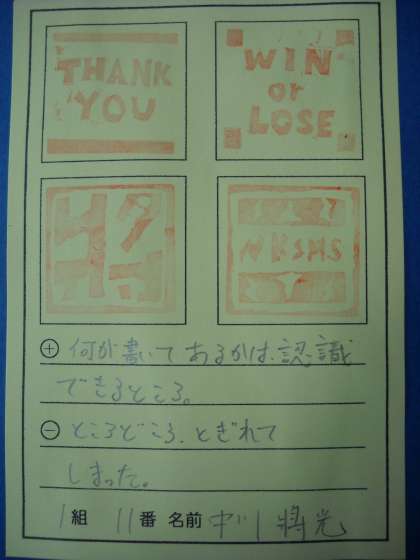 THANK
YOU
WIN
or
LOSE
将
NKSHS
⊕ 何が書いてあるかは、認識
できるところ。
⊖ ところどころ、とぎれて
しまった。
1組 11番 名前 中川 將光